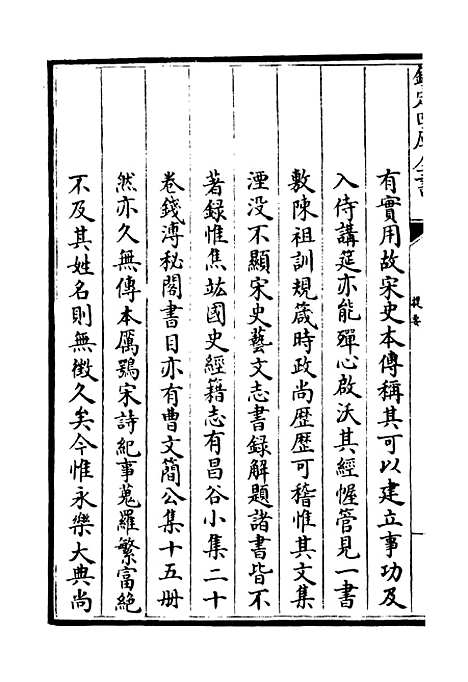 欽定四庫全書
提要
有實用故宋史本傳稱其可以建立事功及
入侍講筵亦能殫心啟沃其經幄管見一書
敷陳祖訓規箴時政尚歴歴可稽惟其文集
湮没不顯宋史藝文志書録解題諸書皆不
著録惟焦竑國史經籍志有昌谷小集二十
卷錢溥秘閣書目亦有曹文簡公集十五册
然亦久無傳本厲鶚宋詩紀事蒐羅繁富絶
不及其姓名則無徵久矣今惟永樂大典尚